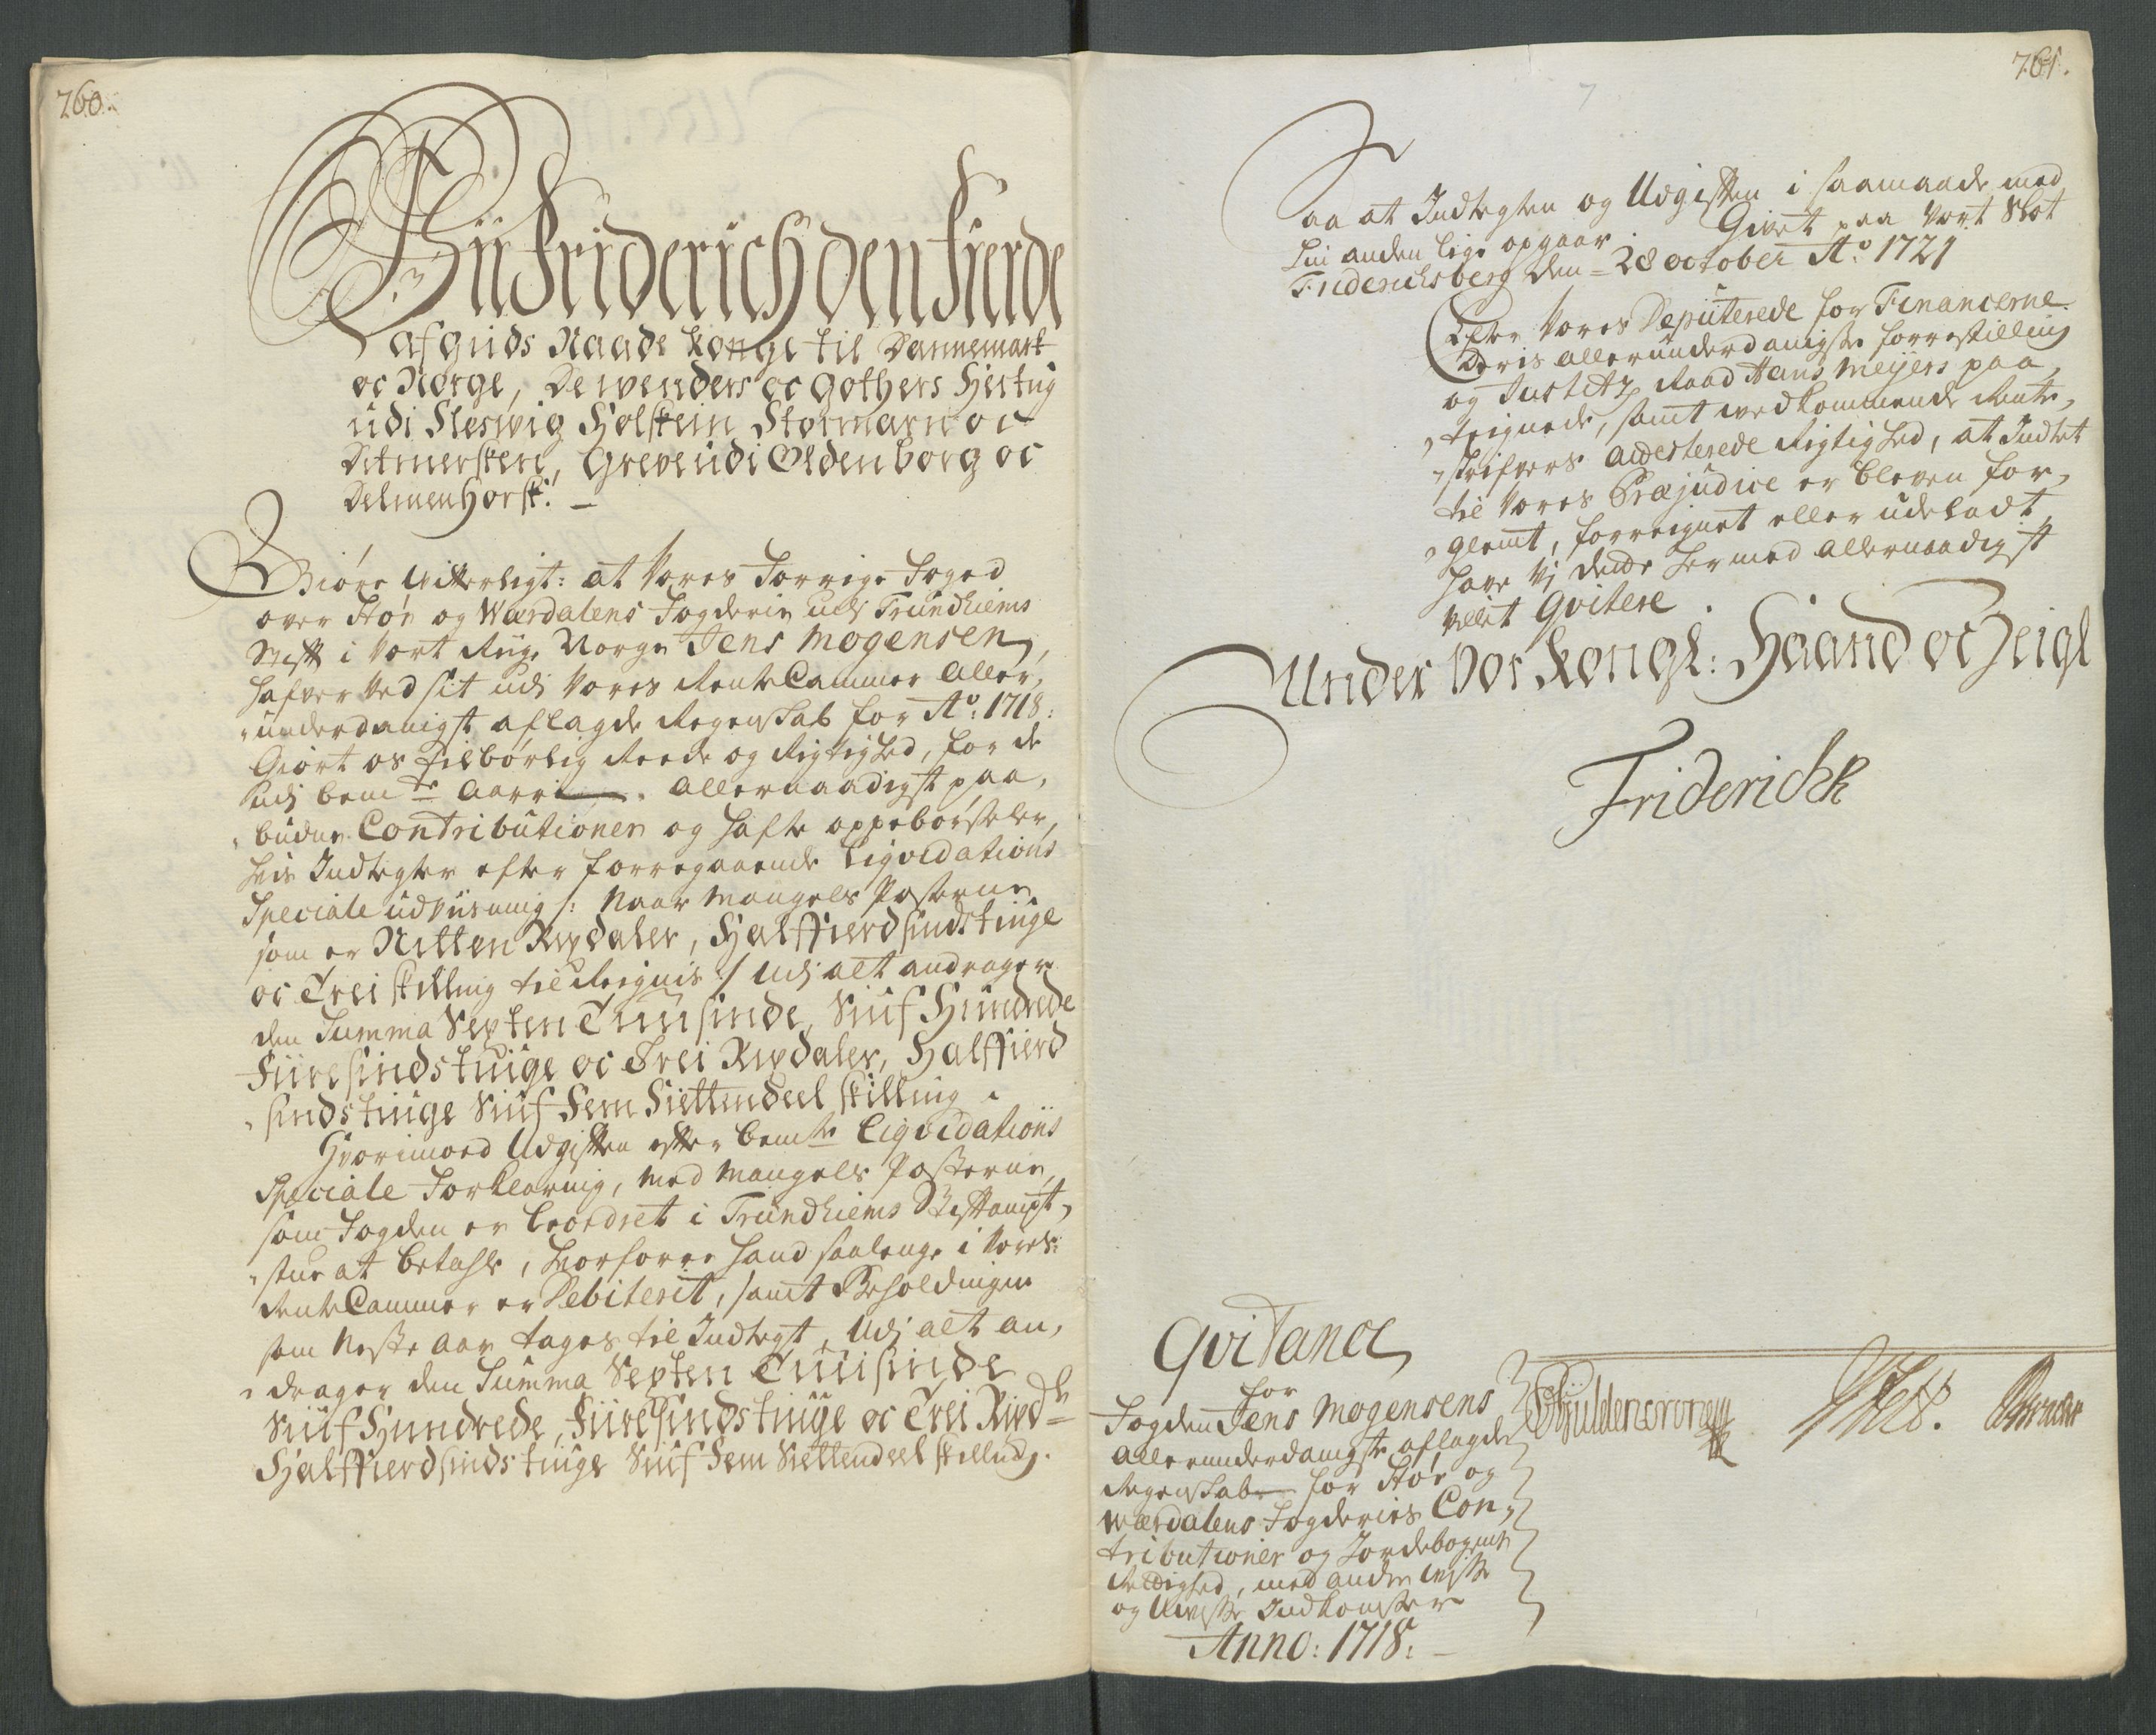 760.
Wii Friderich den Fierde
af Guds Naade Konge til Dannemark
oc Norge, De Wenders oc Gothers Hertug
udi Sleswig Holstein Stormarn oc
Ditmersken, Greve udi Oldenborg oc
Delmenhorst. —
Giøre Witterligt: at Vores Forrige Foged
over Stør og Wærdalens Fogderie udi Trundhiems
Stift i Vort Riige Norge Jens Mogensen,
hafver ved sit udi Vores Rente Cammer Aller,,
,,underdanigst aflagde Regenskab for Aº: 1718:
Giort os tilbørlig Reede og Rigtighed, for de
udj bemte Aar Allernaadigst paa,
,,budne Contributioner og hafte oppebørseler,
hvis Indtegter efter forregaaende Liqvidations
Speciale udviisning /: Naar Mangels Posterne
som er Nitten Rixdaler, Halffierdsindstiuge
oc Trei skilling til Reignis :/ udj alt andrager
den Summa Sexten Tuusinde, Siuf Hundrede
Fiiresindstiuge oc Trei Rixdaler, Halffierd
,,sindstiuge Siuf Fem Siettendeel skilling.
Hvorimood Udgiften efter bemte Liqvidations
Speciale Forklaring, med Mangels Posterne,
som Fogden er beordret i Trundhiems Stiftampt,,
,,stue at betahle, hvorforre hand saalenge i Vores
Rente Cammer er Debiterit, samt Beholdningen
som Neste Aar tages til Indtegt, Udj alt an,,
,,drager den Summa Sexten Tuusinde
Siuf Hundrede, Fiiresindstiuge oc Trei Rixdlr
Halffierdsindstiuge Siuf Fem Siettendeel skilling.
761.
Saa at Indtegten og Udgiften i saamaade med
hin anden lige opgaar. Givet paa Vort Slot
Friderichsberg den 28 October Aº. 1721
Efter Vores Deputerede for Financerne
Deris allerunderdanigste forrestilling
og Justitz Raad Hans Meyers paa,,
,,teignede, samt vedkommende Rente,,
,,skrifvers Attesterede Rigtighed, at Indtet
til Vores Præjudice er bleven for,,
,,glemt, forreignet eller udeladt
have Vj dende hermed allernaadigst
villet Qvitere.
Under Vor Kongl: Haand oc Zeigl
Friderich R
Qvitance
for
Fogden Jens Mogensens
allerunderdanigste aflagde
Regenskab for Stør og
Wærdalens Fogderies Con,,
tributioner og Jordebogens
Rettighed, med anden Visse
og Uvisse Indkomster
Anno: 1718.
Guldencrone